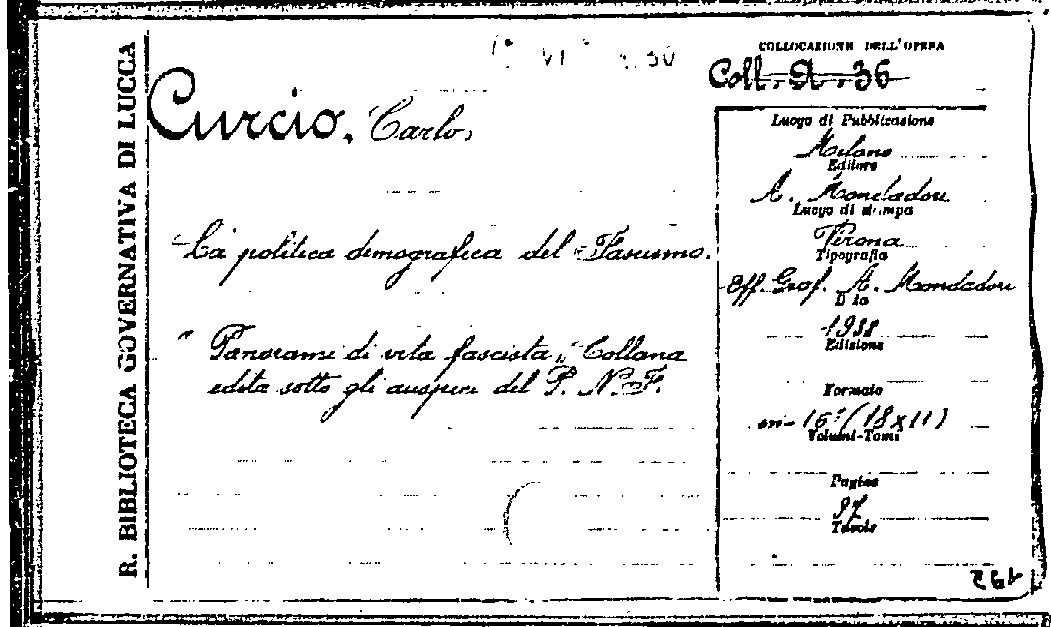 R. BIBLIOTECA GOVERNATIVA DI LUCCA
COLLOCAZIONE DELL'OPERA
Coll. A. 36
Curcio, Carlo,
La politica demografica del Fascismo.
" Panorami di vita fascista „ Collana
edita sotto gli auspici del P. N. F.
Luogo di Pubblicazione
Milano
Editore
A. Mondadori
Luogo di stampa
Verona
Tipografia
Off. Graf. A. Mondadori
Data
1938
Edizione
Formato
in-16° (18x11)
Volumi-Tomi
Pagine
97
Tavole